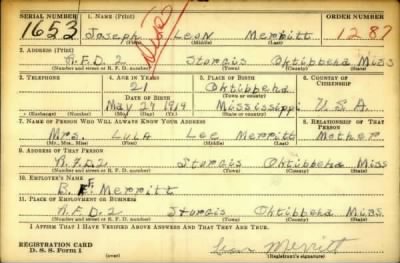 SERIAL NUMBER 1. NAME (Print) ORDER NUMBER
1653 Joseph Leon Merritt 1287
(First) (Middle) (Last)
2. ADDRESS (Print)
R.F.D. 2 Sturgis Oktibbeha Miss
(Number and street or R. F. D. number) (Town) (County) (State)
3. TELEPHONE 4. AGE IN YEARS 5. PLACE OF BIRTH 6. COUNTRY OF CITIZENSHIP
21 Oktibbeha
DATE OF BIRTH (Town or county)
May 27 1919 Mississippi U.S.A.
(Exchange) (Number) (Mo.) (Day) (Yr.) (State or country)
7. NAME OF PERSON WHO WILL ALWAYS KNOW YOUR ADDRESS 8. RELATIONSHIP OF THAT PERSON
Mrs. Lula Lee Merritt Mother
(Mr., Mrs., Miss) (First) (Middle) (Last)
9. ADDRESS OF THAT PERSON
R.F.D.2 Sturgis Oktibbeha Miss
(Number and street or R. F. D. number) (Town) (County) (State)
10. EMPLOYER'S NAME
B. F. Merritt
11. PLACE OF EMPLOYMENT OR BUSINESS
R.F.D. 2 Sturgis Oktibbeha Miss.
(Number and street or R. F. D. number) (Town) (County) (State)
I AFFIRM THAT I HAVE VERIFIED ABOVE ANSWERS AND THAT THEY ARE TRUE.
REGISTRATION CARD
D. S. S. Form 1 Leon Merritt
(over) (Registrant's signature)